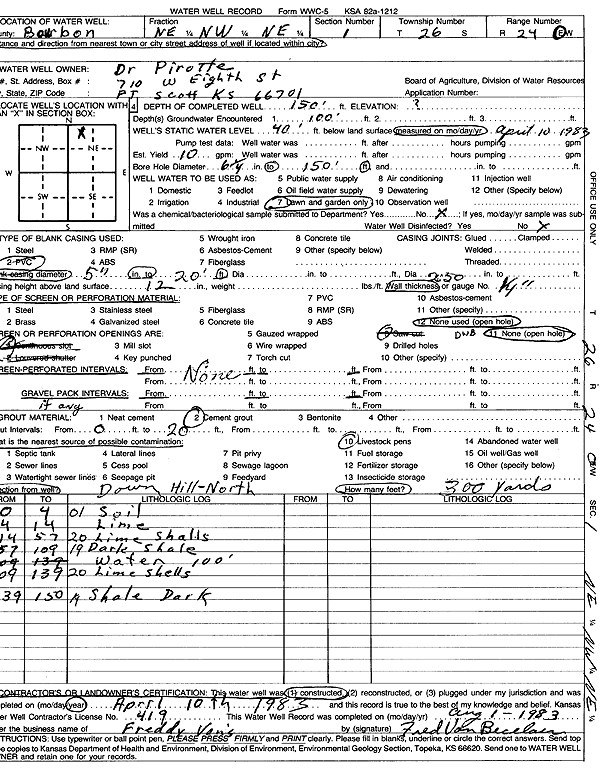 WATER WELL RECORD Form WWC-5 KSA 82a-1212
LOCATION OF WATER WELL: Fraction Section Number Township Number Range Number
unty: Bourbon NE ¼ NW ¼ NE ¼ 1 T 26 S R 24 E/W
tance and direction from nearest town or city street address of well if located within city?
WATER WELL OWNER: Dr Pirotte
#, St. Address, Box # : 710 W Eighth St Board of Agriculture, Division of Water Resources
, State, ZIP Code : FT Scott KS 66701 Application Number:
LOCATE WELL'S LOCATION WITH 4 DEPTH OF COMPLETED WELL 150' ft. ELEVATION: ?
AN "X" IN SECTION BOX: Depth(s) Groundwater Encountered 1. 100' ft. 2. ft. 3. ft.
N X WELL'S STATIC WATER LEVEL 40' ft. below land surface measured on mo/day/yr April 10 1983
NW NE Pump test data: Well water was ft. after hours pumping gpm
Est. Yield 10 gpm: Well water was ft. after hours pumping gpm
W E Bore Hole Diameter 6¼ in. to 150' ft.
WELL WATER TO BE USED AS: 5 Public water supply 8 Air conditioning 11 Injection well
SW SE 1 Domestic 3 Feedlot 6 Oil field water supply 9 Dewatering 12 Other (Specify below)
2 Irrigation 4 Industrial 7 Lawn and garden only 10 Observation well
S Was a chemical/bacteriological sample submitted to Department? Yes No X ; If yes, mo/day/yr sample was sub-
mitted Water Well Disinfected? Yes No X
TYPE OF BLANK CASING USED: 5 Wrought iron 8 Concrete tile CASING JOINTS: Glued Clamped
1 Steel 3 RMP (SR) 6 Asbestos-Cement 9 Other (specify below) Welded
2 PVC 4 ABS 7 Fiberglass Threaded
nk casing diameter 5" in. to 20' ft., Dia in. to ft., Dia in. to ft.
sing height above land surface 12 in., weight lbs./ft. Wall thickness or gauge No. 250
PE OF SCREEN OR PERFORATION MATERIAL: 7 PVC 10 Asbestos-cement
1 Steel 3 Stainless steel 5 Fiberglass 8 RMP (SR) 11 Other (specify)
2 Brass 4 Galvanized steel 6 Concrete tile 9 ABS 12 None used (open hole)
REEN OR PERFORATION OPENINGS ARE: 5 Gauzed wrapped 8 Saw cut DWB 11 None (open hole)
1 Continuous slot 3 Mill slot 6 Wire wrapped 9 Drilled holes
2 Louvered shutter 4 Key punched 7 Torch cut 10 Other (specify)
REEN-PERFORATED INTERVALS: From None ft. to ft., From ft. to ft.
From ft. to ft., From ft. to ft.
GRAVEL PACK INTERVALS: From ft. to ft., From ft. to ft.
if any From ft. to ft., From ft. to ft.
GROUT MATERIAL: 1 Neat cement 2 Cement grout 3 Bentonite 4 Other
ut Intervals: From 0 ft. to 20 ft., From ft. to ft., From ft. to ft.
hat is the nearest source of possible contamination: 10 Livestock pens 14 Abandoned water well
1 Septic tank 4 Lateral lines 7 Pit privy 11 Fuel storage 15 Oil well/Gas well
2 Sewer lines 5 Cess pool 8 Sewage lagoon 12 Fertilizer storage 16 Other (specify below)
3 Watertight sewer lines 6 Seepage pit 9 Feedyard 13 Insecticide storage
ection from well? Down Hill-North How many feet? 300 Yards
ROM TO LITHOLOGIC LOG FROM TO LITHOLOGIC LOG
0 4 01 Soil
4 14 Lime
14 57 20 Lime Shalls
57 109 19 Dark Shale
09 139 Water 100'
09 139 20 Lime Shells
39 150 Shale Dark
CONTRACTOR'S OR LANDOWNER'S CERTIFICATION: This water well was (1) constructed, (2) reconstructed, or (3) plugged under my jurisdiction and was
pleted on (mo/day/year) April 10th 1983 and this record is true to the best of my knowledge and belief. Kansas
er Well Contractor's License No. 419 This Water Well Record was completed on (mo/day/yr) Aug 1-1983
er the business name of Freddy Van's by (signature) Fred Van Becelaere
STRUCTIONS: Use typewriter or ball point pen, PLEASE PRESS FIRMLY and PRINT clearly. Please fill in blanks, underline or circle the correct answers. Send top
e copies to Kansas Department of Health and Environment, Division of Environment, Environmental Geology Section, Topeka, KS 66620. Send one to WATER WELL
NER and retain one for your records.
OFFICE USE ONLY
T 26 R 24 E/W SEC. 1 NE ¼ NW ¼ NE ¼